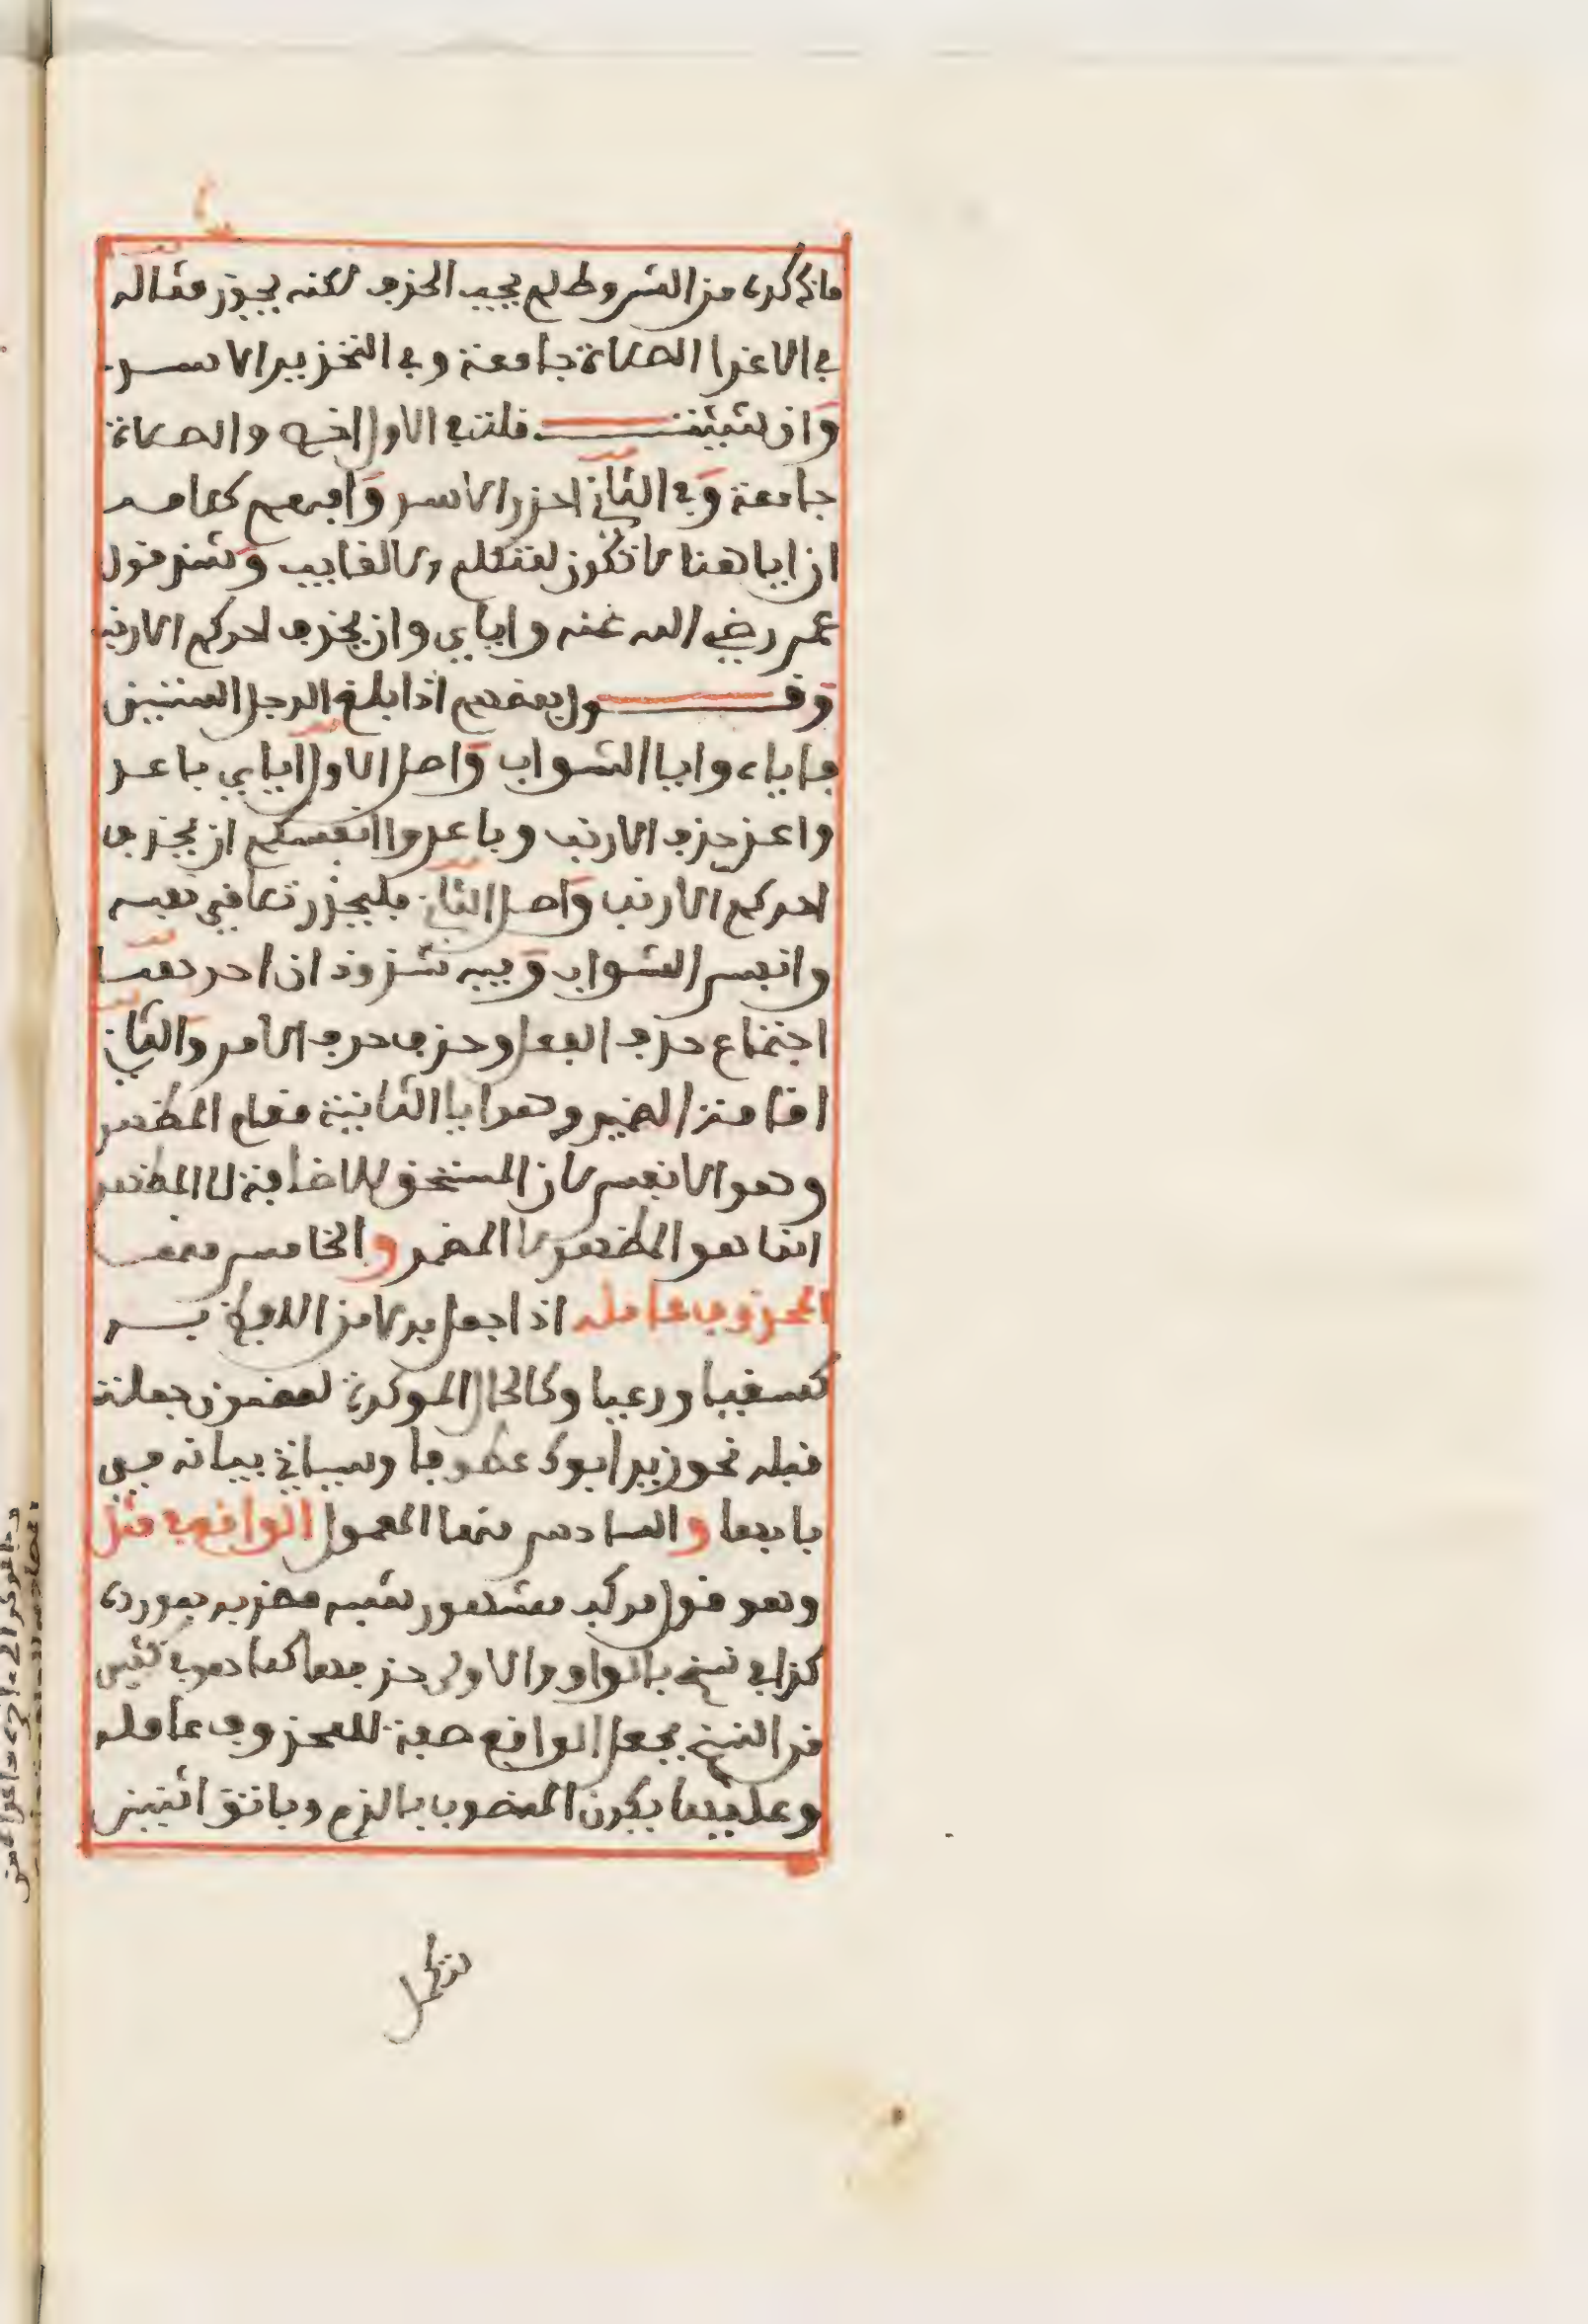 ما ذكره من الشروط لم يجب الحذف لكنه يجوز مثاله
في الاغرا الصلاة جامعة وفي التحذير الاسد
وان شئت قلت في الاول الخ والصلاة
جامعة وفي الثاني احذر الاسد وافهم كلامه
ان ايا هنا لا تكون لمتكلم ولا لغايب وشذ قول
عمر رضي الله عنه واياي وان يحذف احدكم الارنب
وقول بعضهم اذا بلغ الرجل الستين
فاياه وايا الشواب واصل الاول اياي باعد
وا عن حذف الارنب وباعدوا انفسكم ان يحذف
احدكم الارنب واصل الثاني فليحذر تلاقي نفسه
وانفس الشواب وفيه شذوذان احدهما
اجتماع حذف الفعل وحذف حرف الامر والثاني
اقامة الضمير وهو ايا الثانية مقام المظهر
وهو الانفس لان المستحق للاضافة الى المظهر
انما هو المظهر لا المضمر والخامس مما
المحذوف عامله اذا جعل بدلا من اللفظ به
كسقيا ورعيا وكالحال الموكدة لمضمون جملة
قبله نحو زيد ابوك عطوفا وسياتي بيانه في
بابهما والسادس منها المعمول الواقع في مثل
وهو قول مركب مشهور شبه مضربه بمورده
كذا في نسخ بالواو والاولى حذفها كما هو في كثير
من النسخ بجعل الواقع صفة للمحذوف عامله
وعليهما يكون المنصوب بالزم وباتق اثنين
تكمل